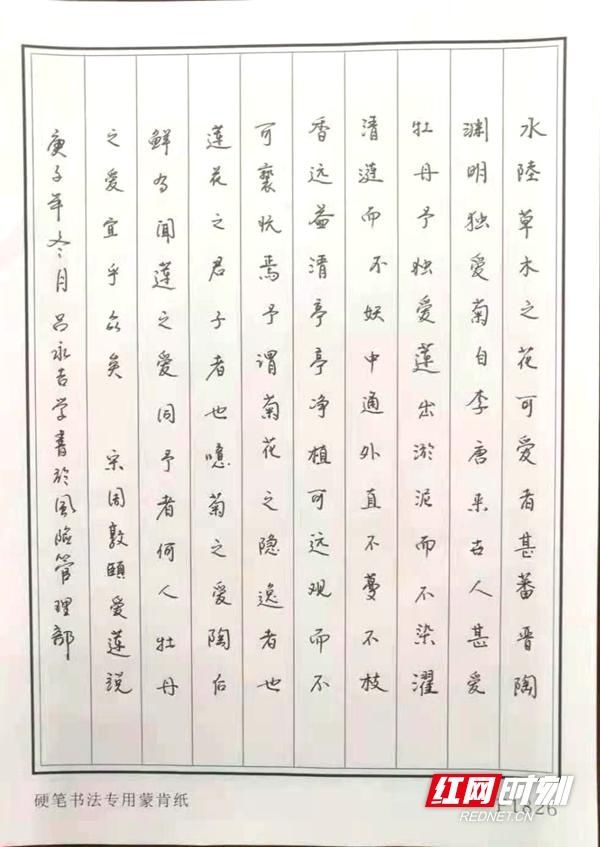 水陸草木之花可爱者甚蕃晋陶
渊明独爱菊自李唐来古人甚爱
牡丹予独爱莲出淤泥而不染濯
清涟而不妖中通外直不蔓不枝
香远益清亭亭净植可远观而不
可褻玩焉予谓菊花之隐逸者也
莲花之君子者也噫菊之爱陶后
鲜有闻莲之爱同予者何人牡丹
之爱宜乎众矣 宋周敦颐爱莲说
庚子年冬月吕永吉学書於風险管理部
硬笔书法专用蒙肯纸
红网时刻
REDNET.CN